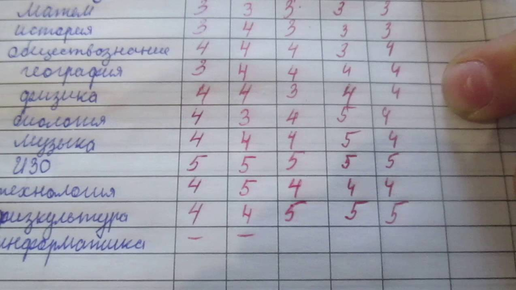 матем 3 3 3 3 3
история 3 4 3 3 3
обществознание 4 4 4 3 4
география 3 4 4 4 4
физика 4 4 3 4 4
биология 4 3 4 5 4
музыка 4 4 4 5 4
ИЗО 5 5 5 5 5
технология 4 5 4 4 4
физкультура 4 4 5 5 5
информатика - -